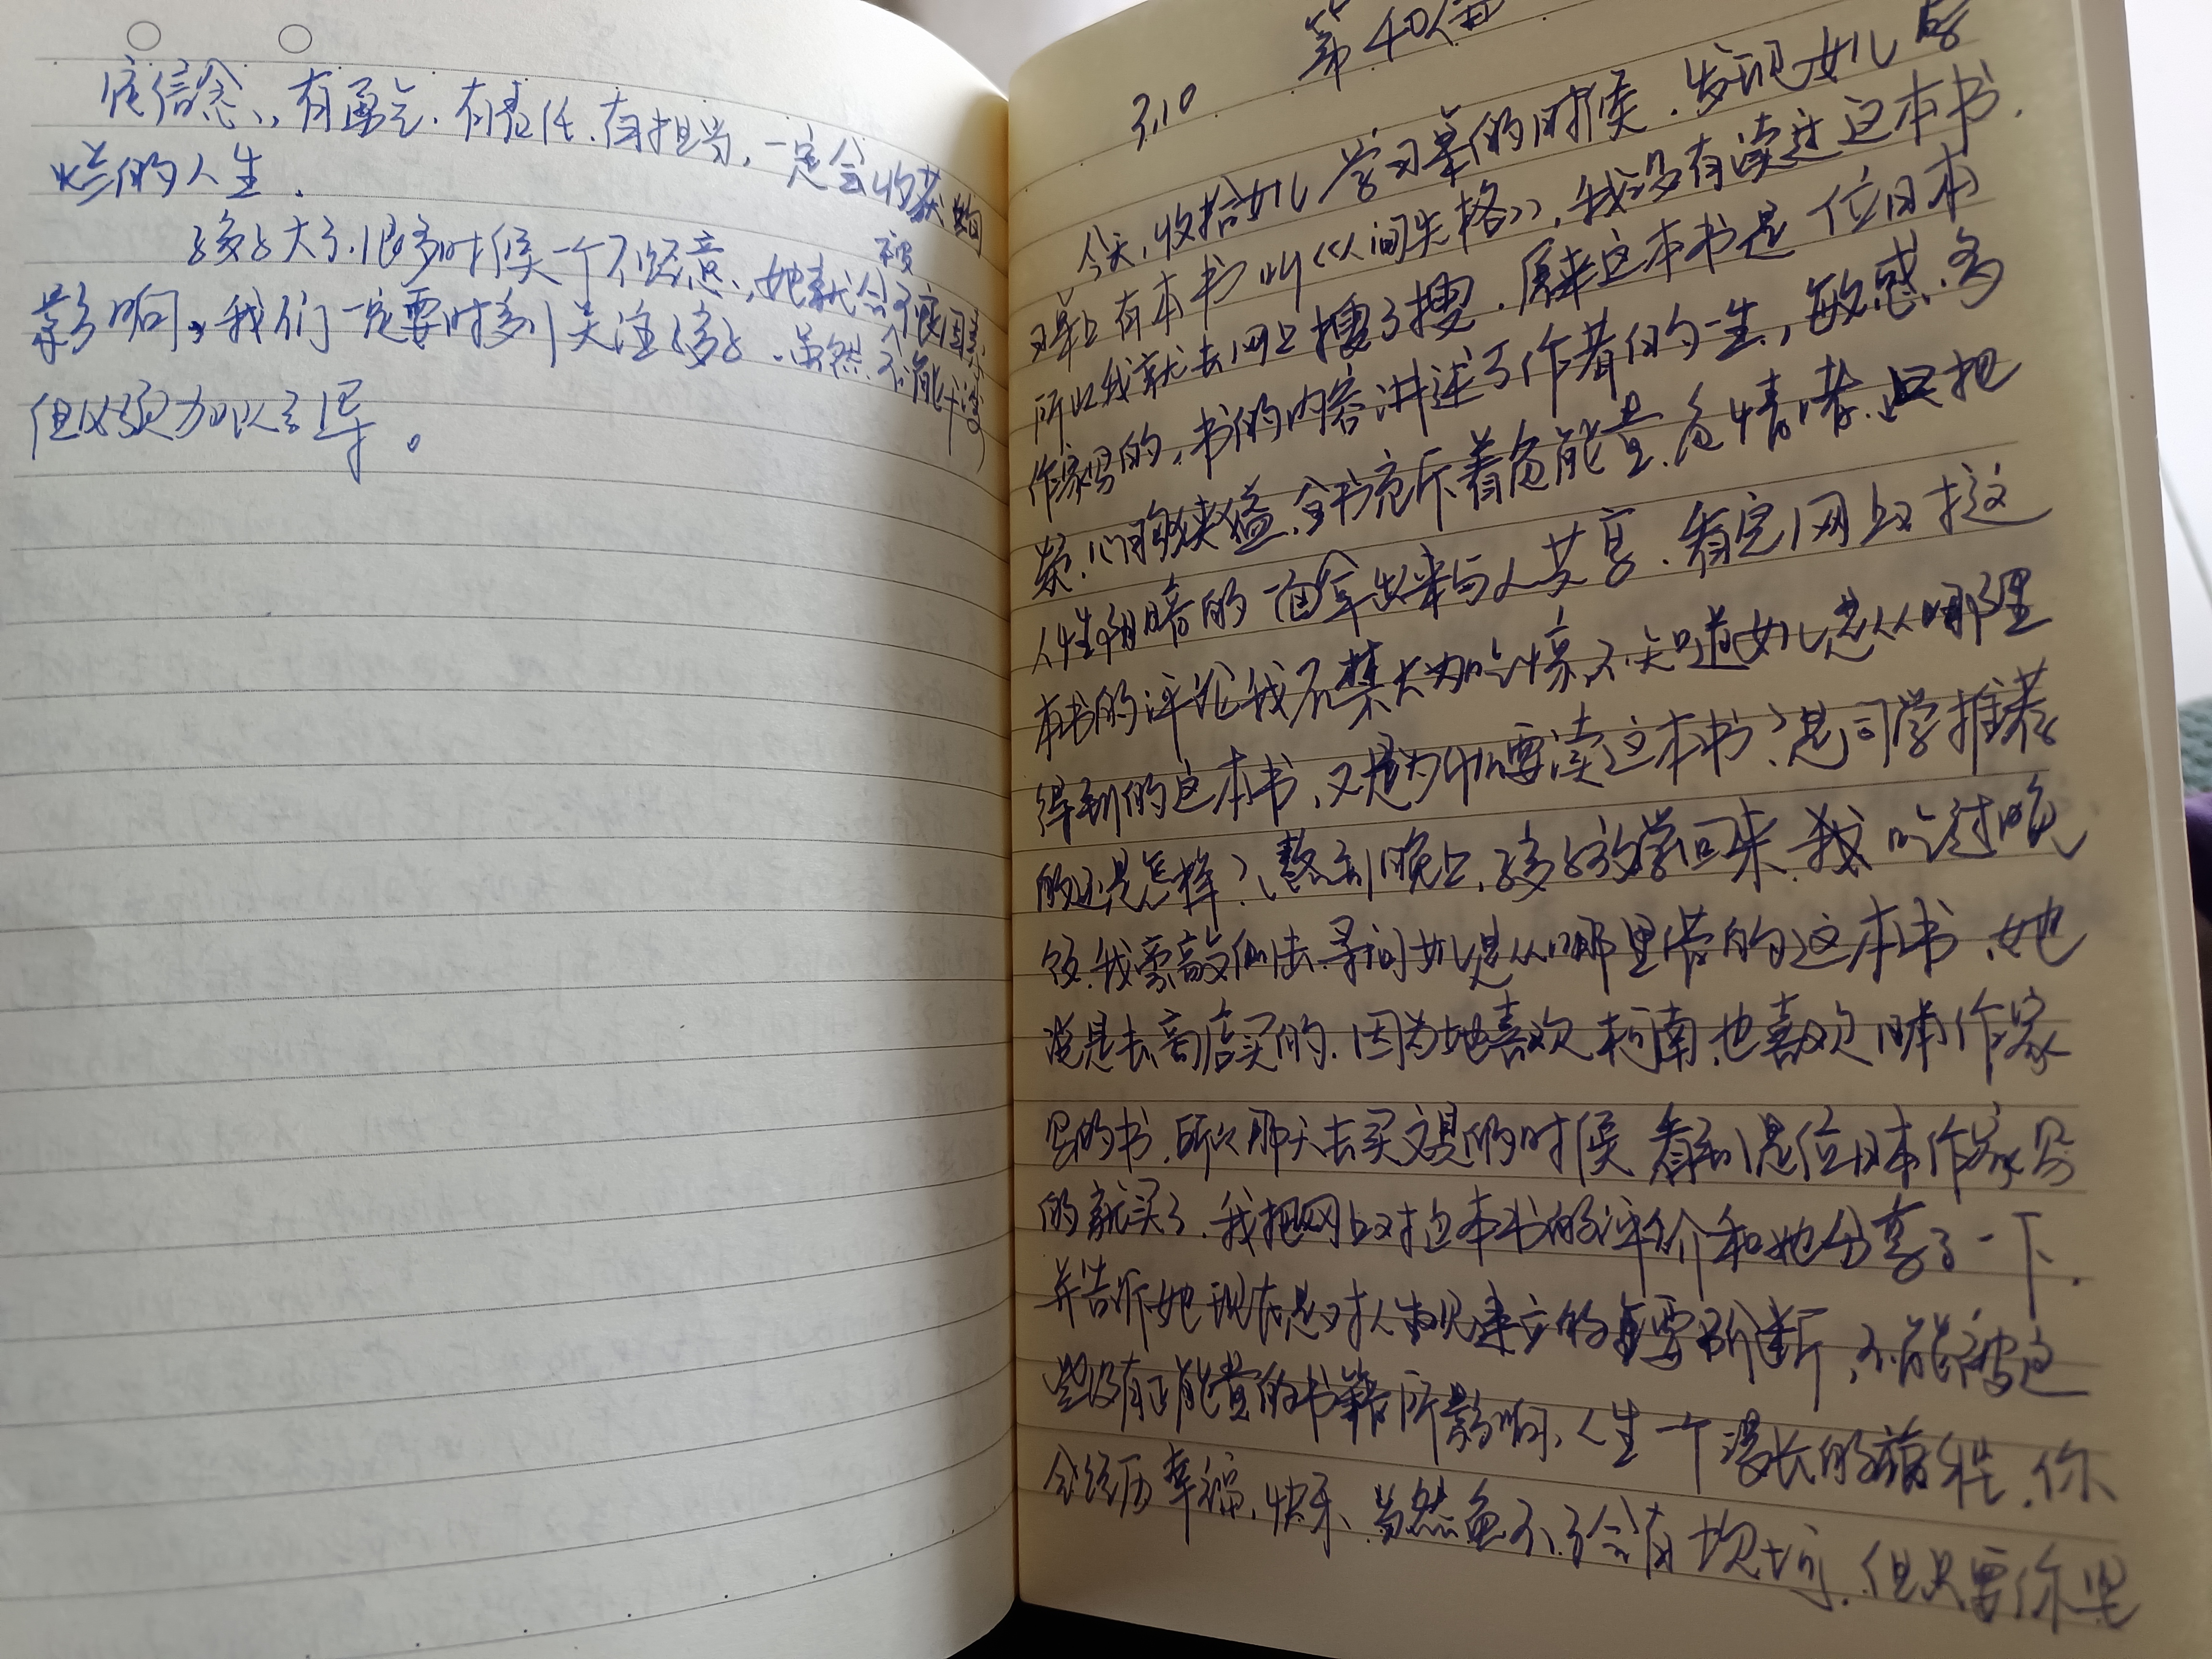 定信念、有勇气、有责任、有担当，一定会收获绚
烂的人生．
孩子大了，很多时候一个不经意，她就会被不良因素
影响，我们一定要时刻关注孩子．虽然不能干涉
但必须加以引导。
3.10 第40篇
今天，收拾女儿学习桌的时候．发现女儿的学
习桌上有本书叫《人间失格》，我没有读过这本书．
所以我就去网上搜了搜．原来这本书是一位日本
作家写的，书的内容讲述了作者的一生，敏感、多
疑、心胸狭隘、全书充斥着负能量、负情绪、只把
人性阴暗的一面拿出来与人共享．看完网上对这
本书的评论我不禁大为吃惊，不知道女儿是从哪里
得到的这本书、又是为什么要读这本书？是同学推荐
的还是怎样？熬到晚上，孩子放学回来、我吃过晚
饭、我旁敲侧击、寻问女儿是从哪里借的这本书、她
说是去商店买的．因为她喜欢柯南，也喜欢日本作家
写的书．所以那天去买文具的时候看到是位日本作家写
的就买了．我把网上对这本书的评价和她分享了一下．
并告诉她现在是对人生观建立的重要阶断，不能被这
些没有正能量的书籍所影响，人生一个漫长的旅程．你
会经历幸福、快乐、当然免不了会有坎坷．但只要你坚